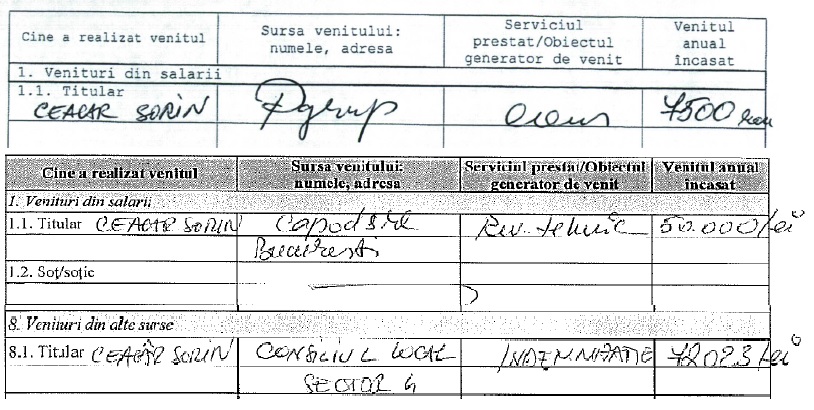 Cine a realizat venitul Sursa venitului: numele, adresa Serviciul prestat/Obiectul generator de venit Venitul anual încasat
1. Venituri din salarii
1.1. Titular
CEACAR SORIN 7500
Cine a realizat venitul Sursa venitului: numele, adresa Serviciul prestat/Obiectul generator de venit Venitul anual încasat
1. Venituri din salarii
1.1. Titular CEACAR SORIN 50.000/lei
Bucuresti
1.2. Soț/soție
8. Venituri din alte surse
8.1. Titular CEACAR SORIN CONSILIUL LOCAL INDEMNIZATIE lei
SECTOR 4